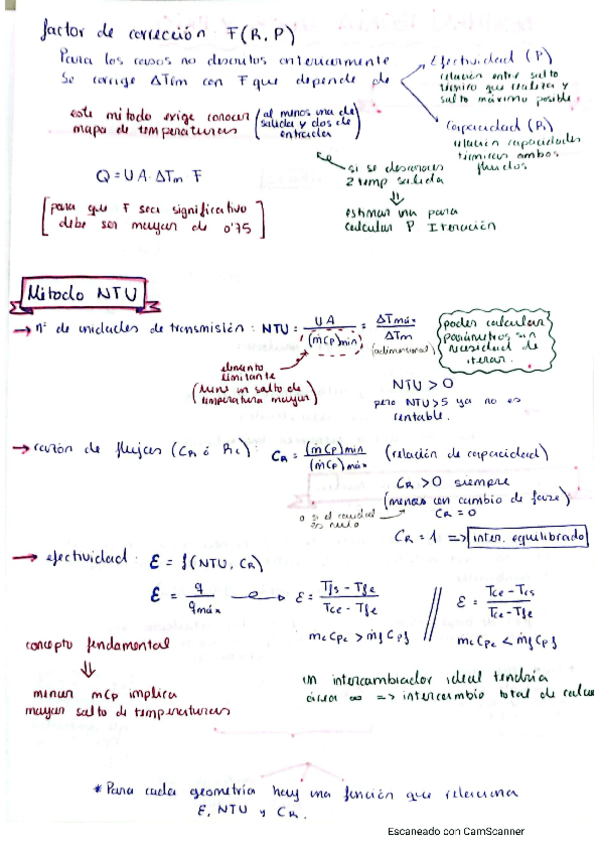 factor de corrección: F(R,P)
Para los casos no descritos anteriormente
Se corrige ΔTlm con F que depende de
Efectividad (P)
relación entre salto
térmico que realiza y
salto máximo posible
Capacidad (R)
relación capacidades
térmicas ambos
fluidos
este método exige conocer
mapa de temperaturas
(al menos una de
salida y dos de
entrada)
Q = U A · ΔTm F
si se desconoces
2 temp salida
⇓
estimar una para
calcular P Iteración
[para que F sea significativo
debe ser mayor de 0'75]
Método NTU
→ nº de unidades de transmisión: NTU = UA / (ṁCp)min = ΔTmáx / ΔTm
(adimensional)
poder calcular
parámetros sin
necesidad de
iterar.
elemento
limitante
(tiene un salto de
temperatura mayor)
NTU > 0
pero NTU>5 ya no es
rentable.
→ razón de flujos (CR ó Rc): CR = (ṁCp)min / (ṁCp)máx (relación de capacidad)
CR > 0 siempre
(menos con cambio de fase)
CR = 0
o si el caudal
es nulo
CR = 1 => inter. equilibrado
→ efectividad: ε = f(NTU, CR)
ε = q / qmáx → ε = Tfs - Tfe / Tce - Tfe // ε = Tce - Tcs / Tce - Tfe
mcCpc > ṁfCpf
mcCpc < ṁfCpf
concepto fundamental
⇓
menor mCp implica
mayor salto de temperaturas
un intercambiador ideal tendría
área ∞ => intercambio total de calor
* Para cada geometría hay una función que relaciona
ε, NTU y CR.
Escaneado con CamScanner